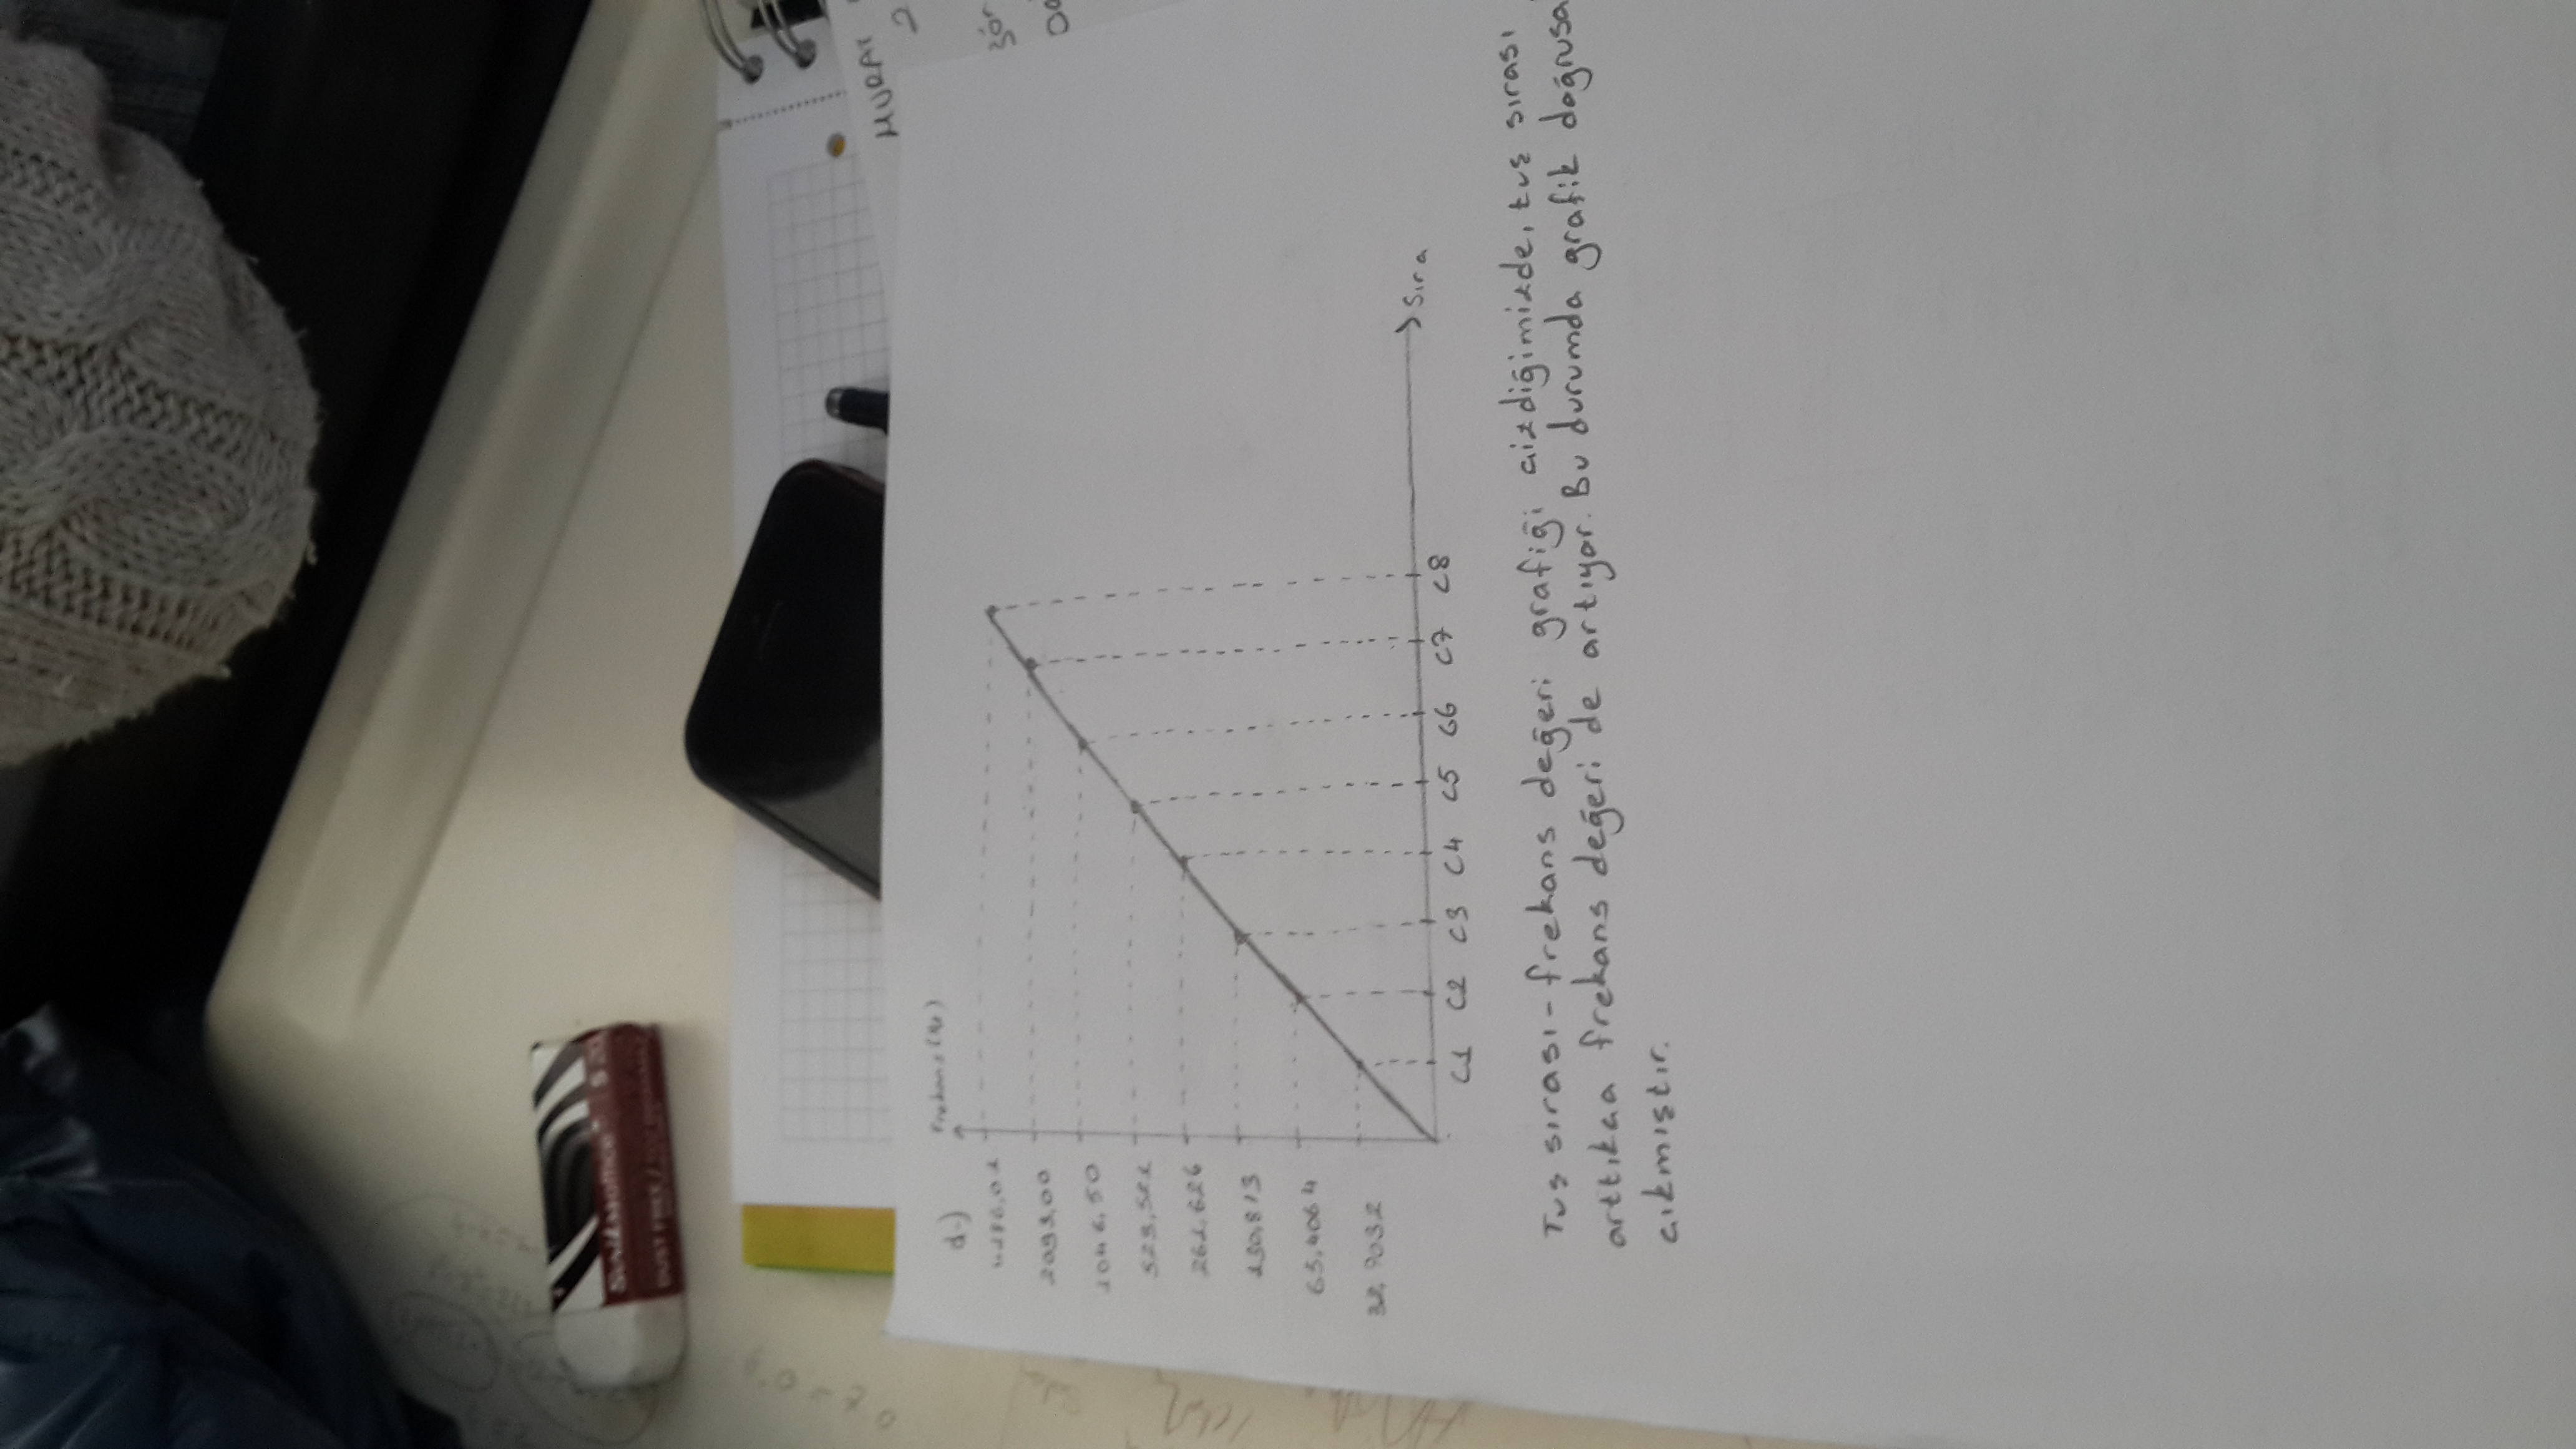 Scrikss office S 20
DUST FREE /
MURAT
2
d-)
Frekans (Hz)
4186,01
2093,00
1046,50
523,521
261,626
130,813
65,4064
32,9032
C1 C2 C3 C4 C5 C6 C7 C8
Sıra
Tuş sırası-frekans değeri grafiği çizdiğimizde, tuş sırası
arttıkça frekans değeri de artıyor. Bu durumda grafik doğrusa
çıkmıştır.